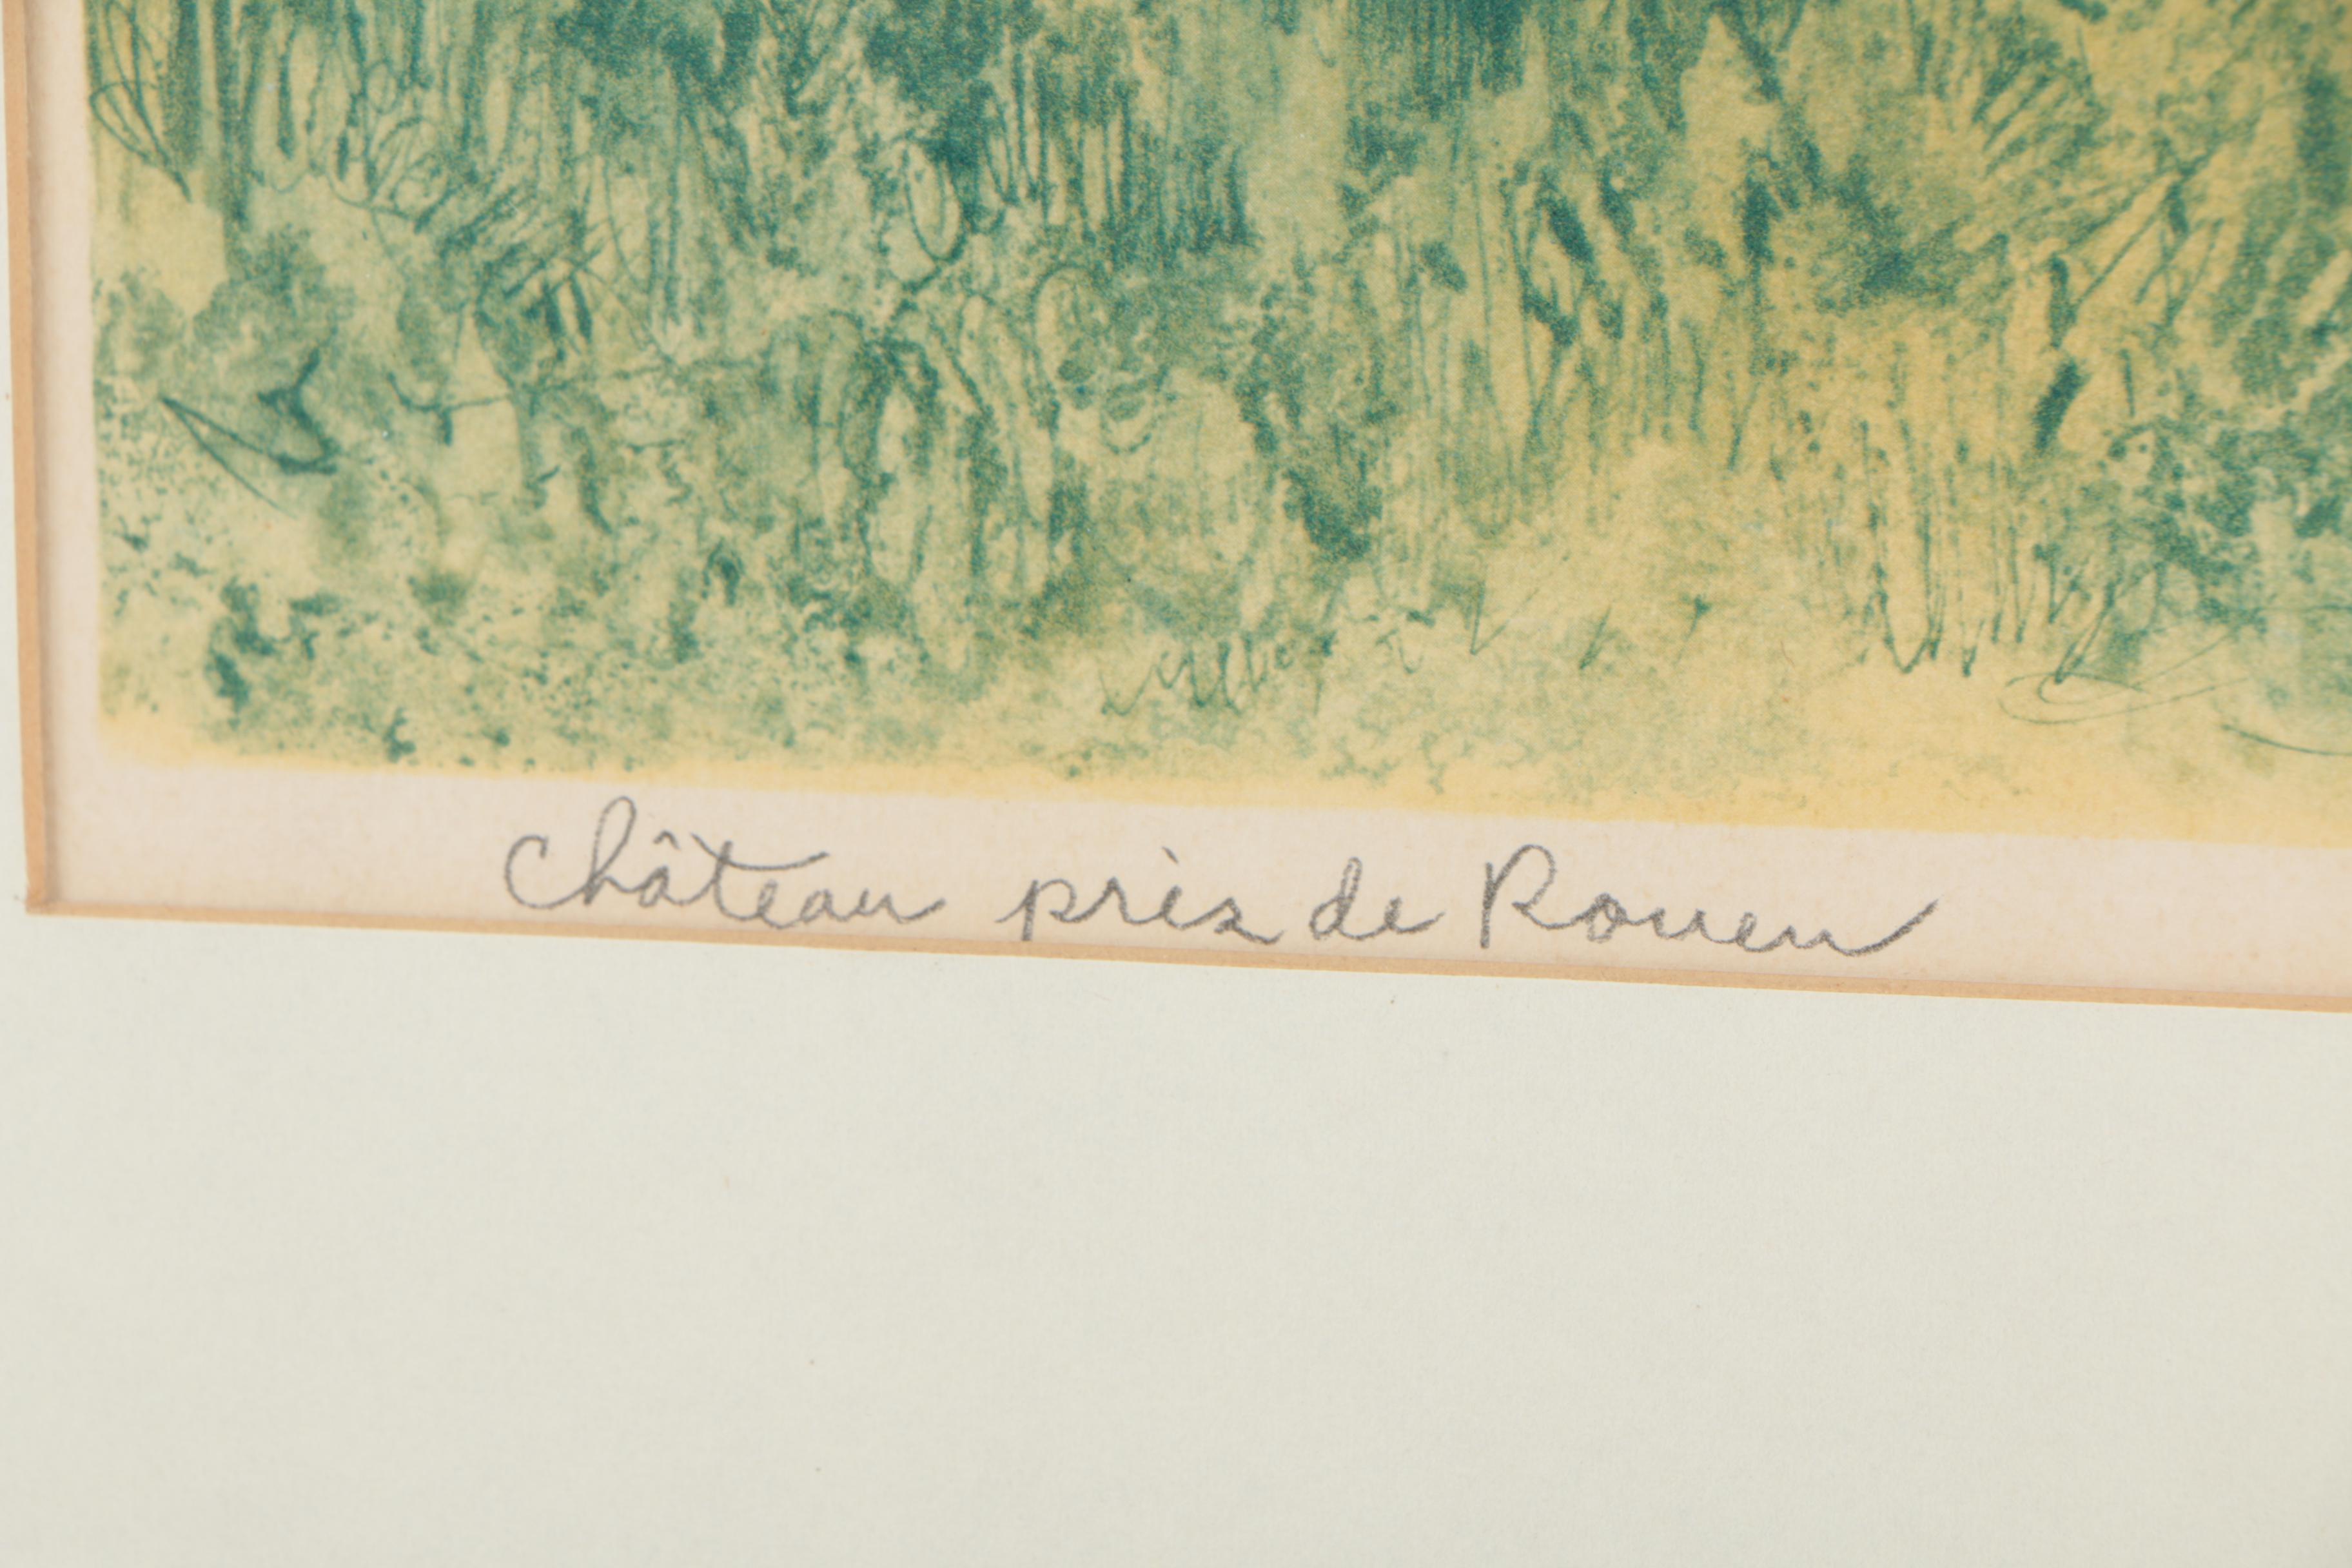 Château près de Rouen